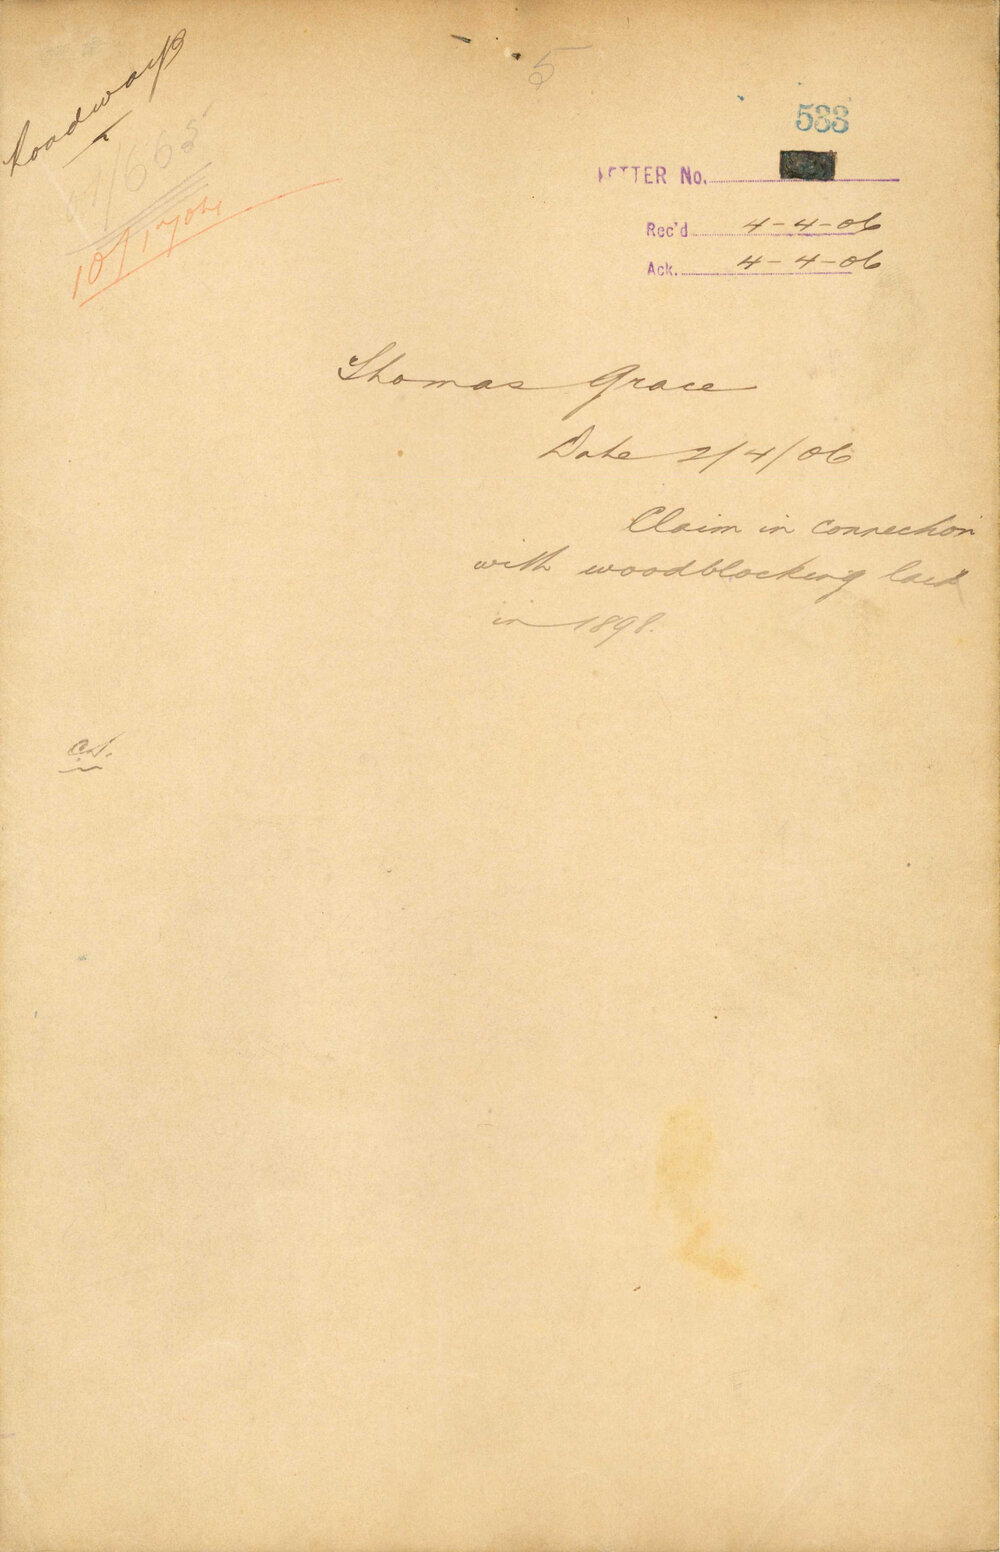 Roadways
5
533
LETTER No.
Rec'd 4-4-06
Ack. 4-4-06
Thomas Grace
Date 2/4/06
Claim in connection
with woodblocking laid
in 1898.